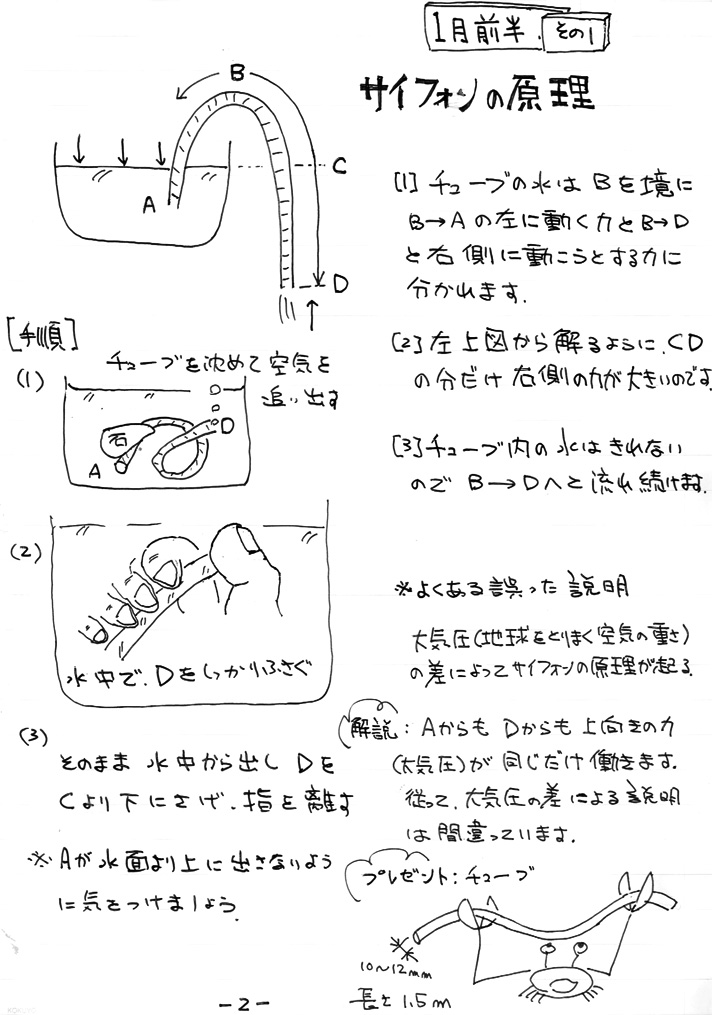 1月前半 その1
サイフォンの原理
B
A
C
D
[1] チューブの水は Bを境に
B→Aの左に動く力とB→D
と右側に動こうとする力に
分かれます.
[2] 左上図から解るように、CD
の分だけ右側の力が大きいのです.
[3] チューブ内の水はきれない
ので B→Dへと流れ続けます.
[手順]
(1)
チューブを沈めて空気を
追い出す
石
A
D
(2)
水中で、Dをしっかりふさぐ
(3)
そのまま 水中から出し Dを
Cより下にさげ、指を離す
※ Aが水面より上に出さないよう
に気をつけましょう.
※よくある誤った説明
大気圧(地球をとりまく空気の重さ)
の差によってサイフォンの原理が起る.
解説: AからもDからも上向きの力
(大気圧)が同じだけ働きます.
従って、大気圧の差による説明
は間違っています.
プレゼント:チューブ
10〜12mm
長さ 1.5m
-2-